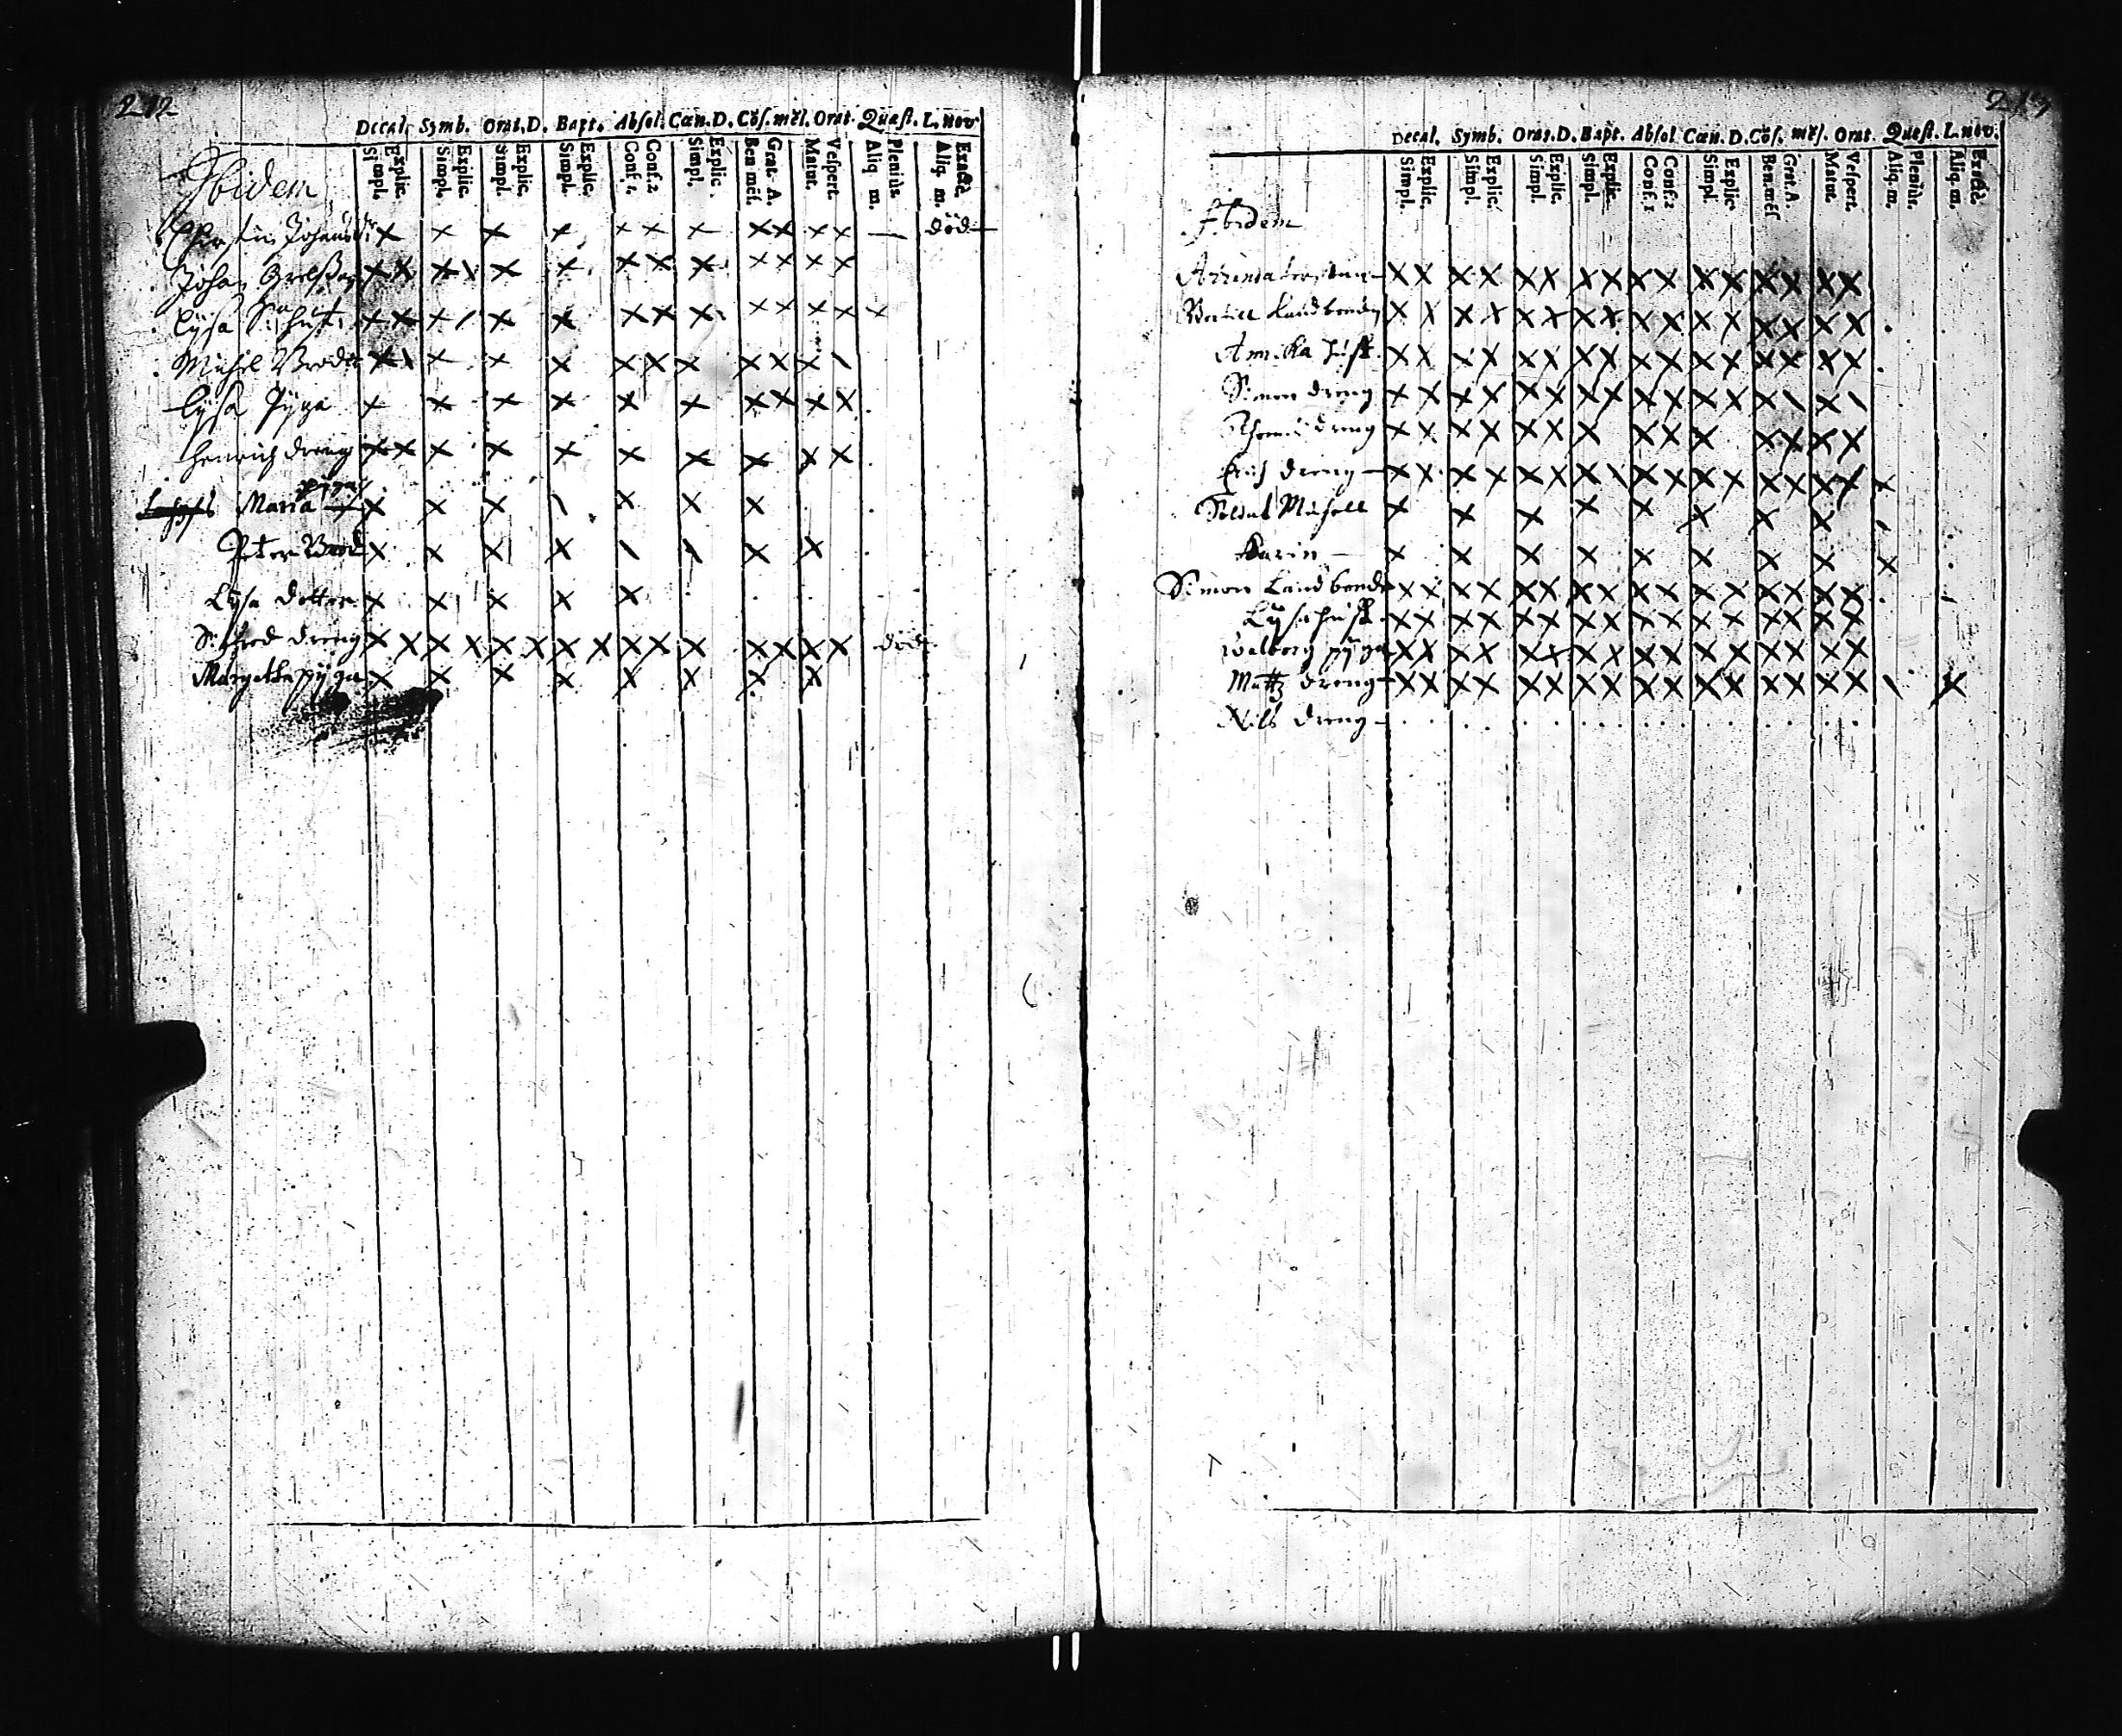 212
Decal. Symb. Orat. D. Bapt. Absol. Cœn. D. Cōs. mēs. Orat. Quæst. L. nov
Explic. Simpl. Explic. Simpl. Explic. Simpl. Explic. Simpl. Conf. 2 Conf. 1. Explic. Simpl. Grat. A. Ben mēs. Vespert. Matut. Plenius. Aliq m. Exactē. Aliq. m.
Ibidem
x x x x x x x x x x x — död —
Johan x x x x x x x x x x x x x x
Lysa x x x / x x x x x x x x x x
Michel Broder x \ x x x x x x x x x \
Lysa Pyga x x x x x x x x x x
Henrich dreng x x x x x x x x x x
pyga
Maria x x x \ x x x
Peter Brod x x x x \ \ x x
Lysa dotter x x x x x
dreng x x x x x x x x x x x x x x x död
Margetha pyga x x x x x x x x
Decal. Symb. Orat. D. Bapt. Absol Cœn. D. Cōs. mēs. Orat. Quæst. L. nov.
Explic. Simpl. Explic. Simpl. Explic. Simpl. Explic. Simpl. Conf. 2 Conf. 1 Explic Simpl Grat. A. Ben. mēs Vespert. Matut. Pleniùr. Aliq. m. Exactè. Aliq. m.
Ibidem
x x x x x x x x x x x x x x x x
Landbonde x x x x x x x x x x x x x x x x
Annika hust. x x x x x x x x x x x x x x x x
Simon dreng x x x x x x x x x x x x x \ x \
Thomas dreng x x x x x x x x x x x x x x
Erich dreng — x x x x x x x \ x x x x x x x x x
Soldat Michell x x x x x x x x
Karin — x x x x x x x x x
Simon Landbonde x x x x x x x x x x x x x x x x
Lysa hust. x x x x x x x x x x x x x x x x
Walborg pyga x x x x x x x x x x x x x x x x
Mattz dreng x x x x x x x x x x x x x x x x \ x
Nils dreng —